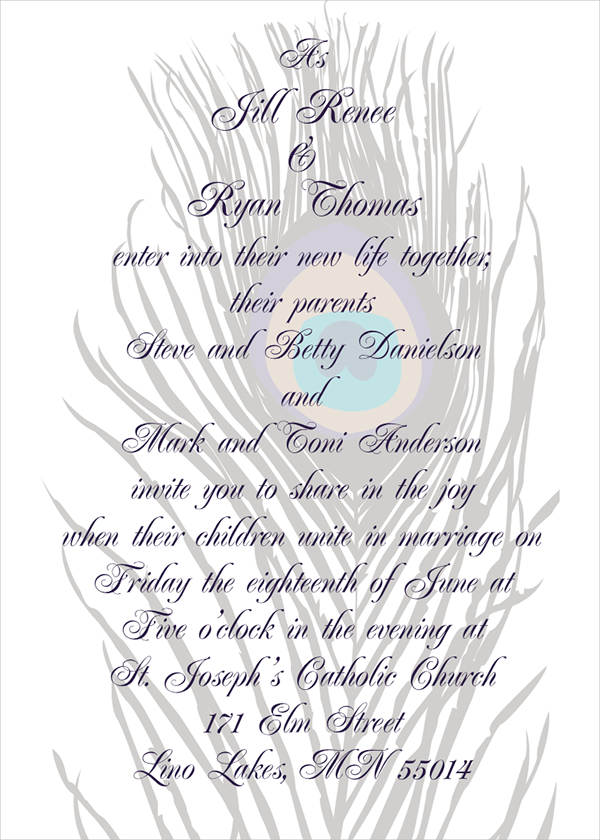 As
Jill Renee
&
Ryan Thomas
enter into their new life together,
their parents
Steve and Betty Danielson
and
Mark and Toni Anderson
invite you to share in the joy
when their children unite in marriage on
Friday the eighteenth of June at
Five o'clock in the evening at
St. Joseph's Catholic Church
171 Elm Street
Lino Lakes, MN 55014